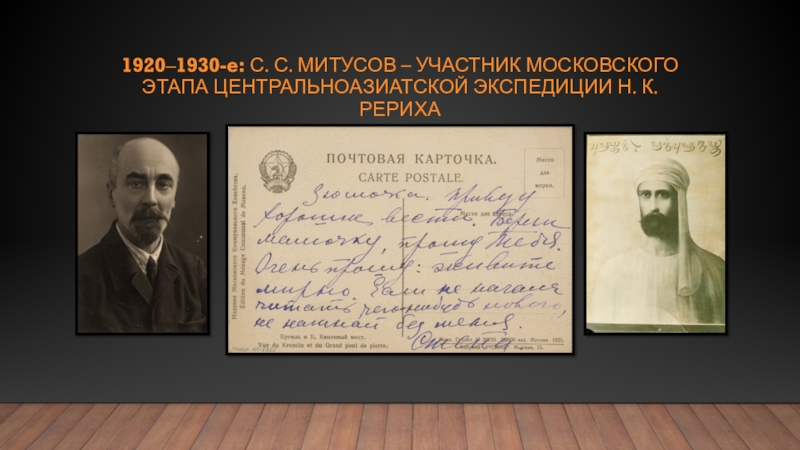 1920–1930-е: С. С. МИТУСОВ – УЧАСТНИК МОСКОВСКОГО
ЭТАПА ЦЕНТРАЛЬНОАЗИАТСКОЙ ЭКСПЕДИЦИИ Н. К.
РЕРИХА
ПОЧТОВАЯ КАРТОЧКА.
CARTE POSTALE.
Место
для
марки.
Издание Московского Коммунального Хозяйства.
Edition du Ménage Communal de Moscou.
Зюмочка. Привезу
хорошие вести. Береги
Место для
мамочку, прошу Тебя.
Очень прошу: живите
мирно. Если не начала
читать чего-нибудь нового,
не начинай без меня.
Кремль и Б. Каменный мост.
Vue du Kremlin et du Grand pont de pierre.